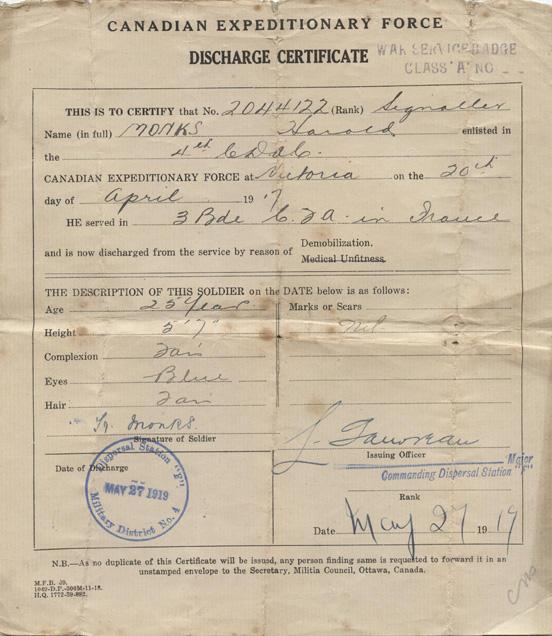 CANADIAN EXPEDITIONARY FORCE
DISCHARGE CERTIFICATE
WAR SERVICE BADGE
CLASS "A" NO
THIS IS TO CERTIFY that No. 2044122 (Rank) Signaller
Name (in full) MONKS Harold enlisted in
the 4th
CANADIAN EXPEDITIONARY FORCE at Victoria on the 20th
day of April 1917
HE served in 3 Bde C.F.A. in France
and is now discharged from the service by reason of Demobilization.
Medical Unfitness.
THE DESCRIPTION OF THIS SOLDIER on the DATE below is as follows:
Age 25 Year
Height 5' 7"
Complexion Fair
Eyes Blue
Hair Fair
Marks or Scars
Nil
H. Monks.
Signature of Soldier
Date of Discharge
Dispersal Station "F"
MAY 27 1919
Military District No. 4
Issuing Officer
Major
Commanding Dispersal Station
Rank
Date May 27 1919
N.B.—As no duplicate of this Certificate will be issued, any person finding same is requested to forward it in an
unstamped envelope to the Secretary, Militia Council, Ottawa, Canada.
M.F.B. 39.
H.Q. 1772-39-882.